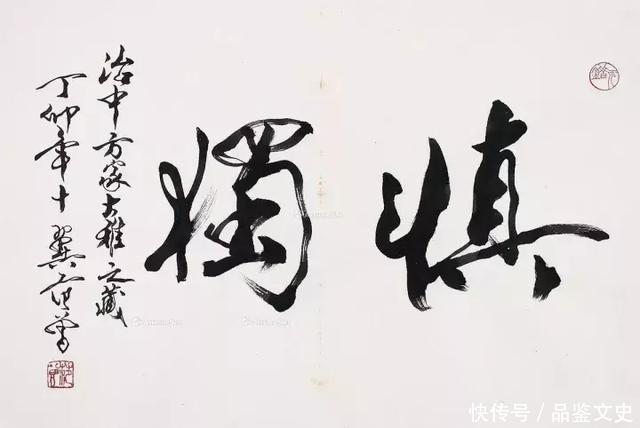 慎獨
治中方家大雅之藏
丁卯年十翼范曾
快传号／品鉴文史